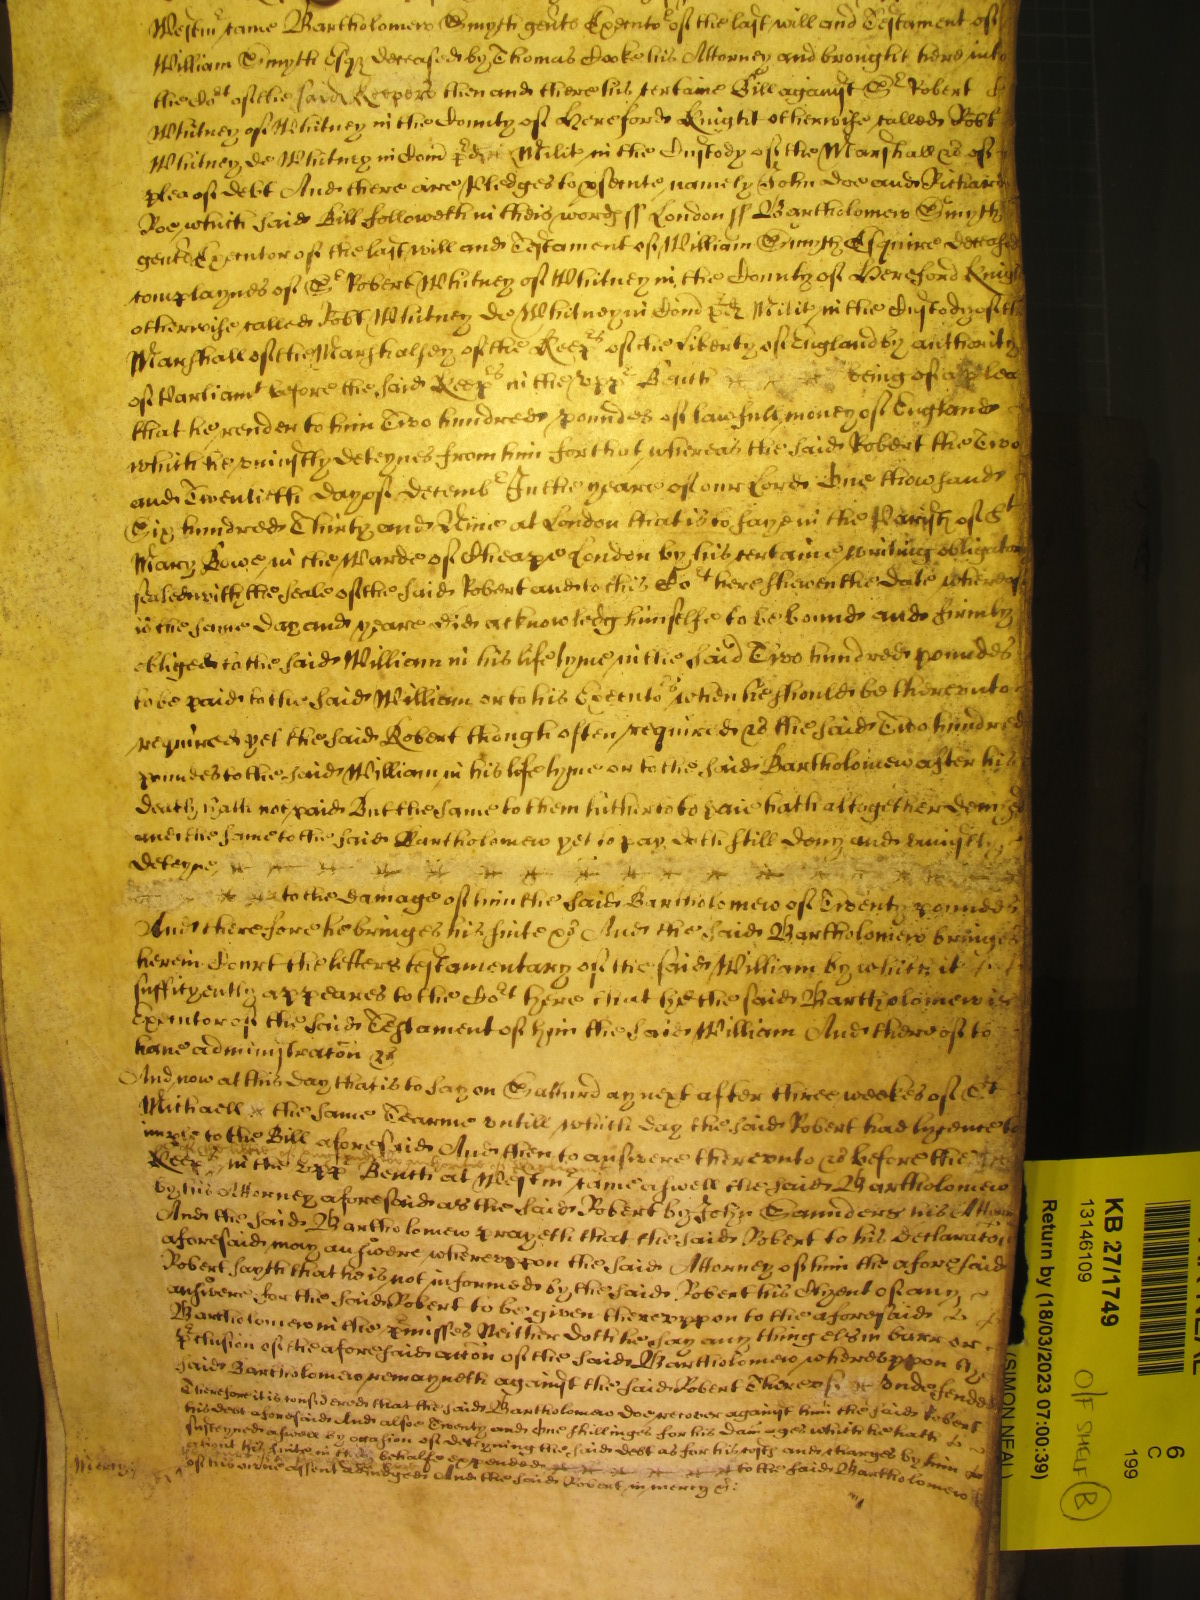 Westmr came Bartholomew Smyth gent Executor of the last will and Testament of
William Smyth Esqr deceased by Thomas Cooke his Attorney and brought here into
the Cort of the said Keepers then and there his certaine Bill against Sr Robert
Whitney of Whitney in the County of Hereford Knight otherwise called Robt
Whitney de Whitney in Com pred Milit in the Custody of the Marshall &c of
plea of debt And there are Pledges to prsecute namely John Doe and Richard
Roe which said Bill followeth in theis words ss London ss Bartholomew Smyth
gent Executor of the last will and Testament of William Smyth Esquire deceased
complaynes of Sr Robert Whitney of Whitney in the County of Hereford Knight
otherwise called Robt Whitney de Whitney in Com pred Milit in the Custody of the
Marshall of the Marshalsey of the Keeprs of the Liberty of England by authority
of Parliamt before the said Keeprs in the vppr Bench being of a plea
that he render to him Two hundred poundes of lawfull money of England
which he vniustly deteynes from him for that whereas the said Robert the Two
and Twentieth day of Decembr In the yeare of our Lord One thowsand
Six hundred Thirty and Nine at London that is to saye in the Parish of St
Mary Bowe in the Warde of Cheape London by his certaine writing obligatory
sealed with the seale of the said Robert and to this Cort here shewen the date whereof
is the same day and yeare did acknowledg himselfe to be bound and firmly
obliged to the said William in his life tyme in the said Two hundred poundes
to be paid to the said William or to his Executors when he should be therevnto
required yet the said Robert though often required &c the said Two hundred
poundes to the said William in his life tyme or to the said Bartholomew after his
death hath not paid But the same to them hitherto to paie hath altogether denyed
and the same to the said Bartholomew yet to pay doth still deny and vniustly
deteyne
to the damage of him the said Bartholomew of Twenty poundes
And therefore he bringes his suite &c And the said Bartholomew bringes
here in Court the letters testamentary of the said William by which it
suffityently appeares to the Cort here that he the said Bartholomew is
Executor of the said Testament of him the said William And thereof to
haue administraton &c
And now at this day that is to say on Satturday next after three weekes of St
Michaell the same Tearme vntill which day the said Robert had lycence to
imple to the Bill aforesaid And then to answere therevnto &c before the
Keeprs in the vppr Bench at Westmr came aswell the said Bartholomew
by his Attorney aforesaid as the said Robert by John Saunders his Attorney
And the said Bartholomew prayeth that the said Robert to his declaraton
aforesaid may answere wherevppon the said Attorney of him the aforesaid
Robert sayth that he is not informed by the said Robert his Clyent of any
answere for the said Robert to be given therevppon to the aforesaid
Bartholomew in the prmisses Neither doth he say any thing els in barr or
prclusion of the aforesaid acton of the said Bartholomew wherevppon the
said Bartholomew remayneth against the said Robert Thereof vndefended
Therefore it is considered that the said Bartholomew doe recover against him the said Robert
his debt aforesaid And alsoe Twenty and One shillinges for his damages which he hath
susteyned aswell by occasion of deteyning the said debt as for his costs and charges by him
about his suite in that behalfe expended to the said Bartholomew
of his owne assent adiudged And the said Robert in mercy &c
Mercy
KB 27/1749
13146109
Return by (18/03/2023 07:00:39)
(SIMON NEAL)
OFF SHELF (B)
6
C
199